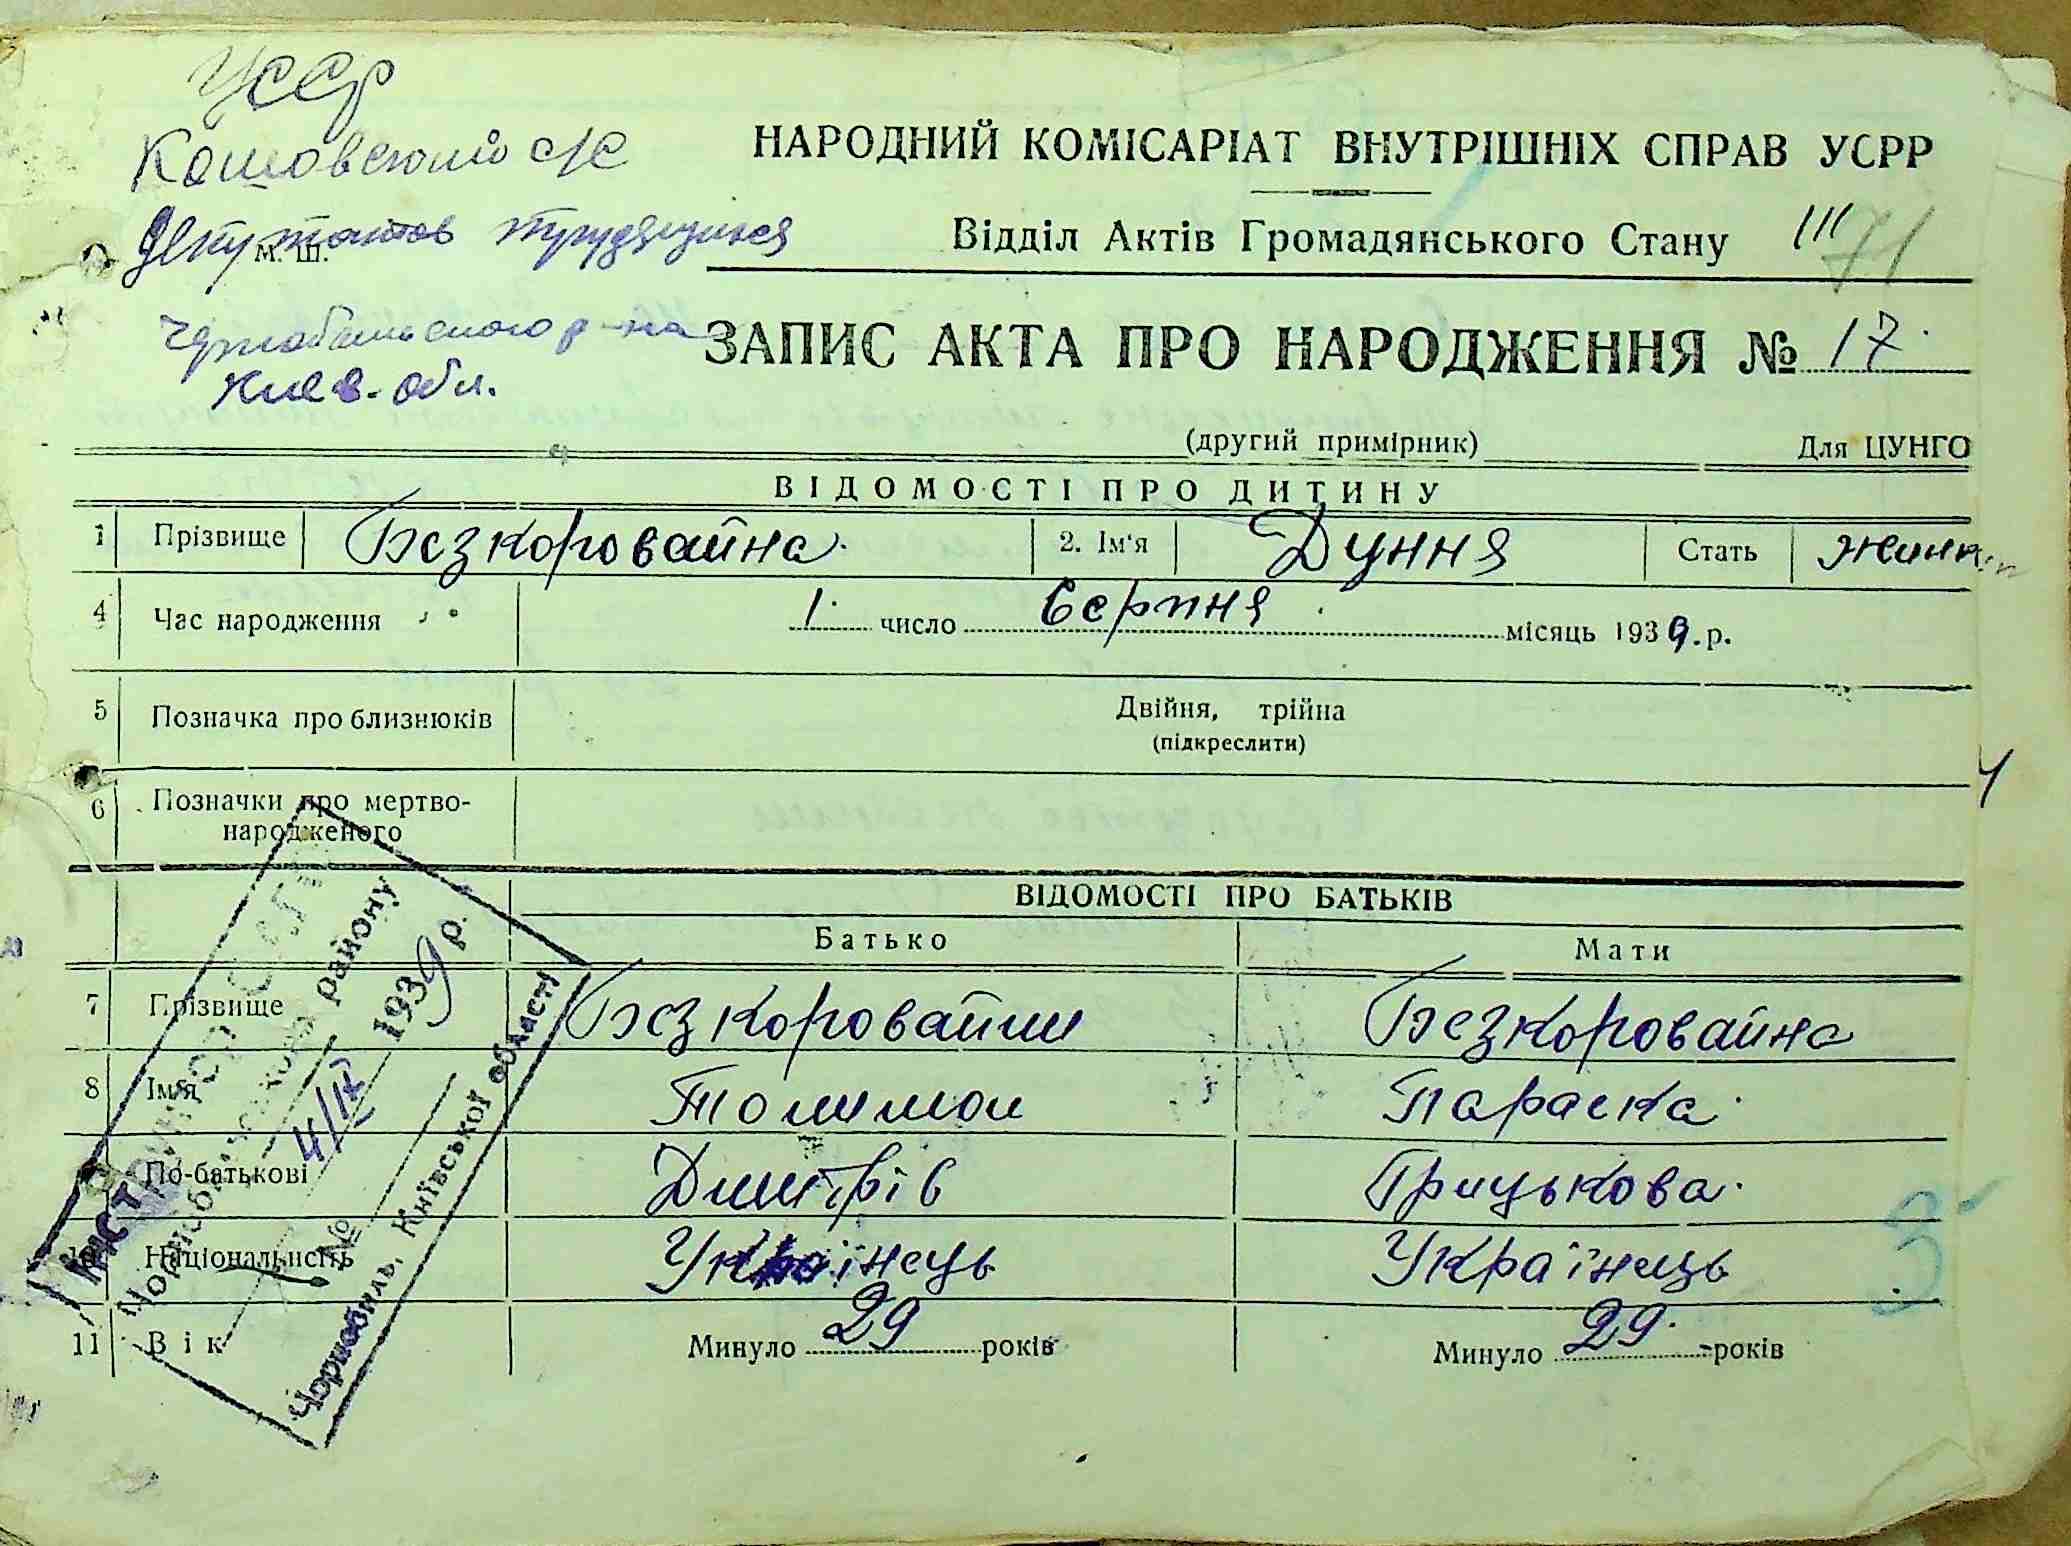 УССР
Кошовский с/с
НАРОДНИЙ КОМІСАРІАТ ВНУТРІШНІХ СПРАВ УСРР
депутатов трудящихся
м. ш.
Відділ Актів Громадянського Стану III 71
Чернобыльского р-на
Киев. обл.
ЗАПИС АКТА ПРО НАРОДЖЕННЯ № 17
(другий примірник) Для ЦУНГО
ВІДОМОСТІ ПРО ДИТИНУ
1 Прізвище Безкоровайна 2. Ім'я Дуння Стать
4 Час народження 1 число Серпня місяць 1939.р.
5 Позначка про близнюків Двійня, трійна
(підкреслити)
6 Позначки про мертво-
народженого
ВІДОМОСТІ ПРО БАТЬКІВ
Батько Мати
7 Прізвище Безкоровайни Безкоровайна
8 Ім'я Параска
По-батькові Дмитрів Грицькова
10 Національність Українець Українець
11 Вік Минуло 29 років Минуло 29 років
району
4/IX 1939 р.
№
Чорнобиль, Київської області